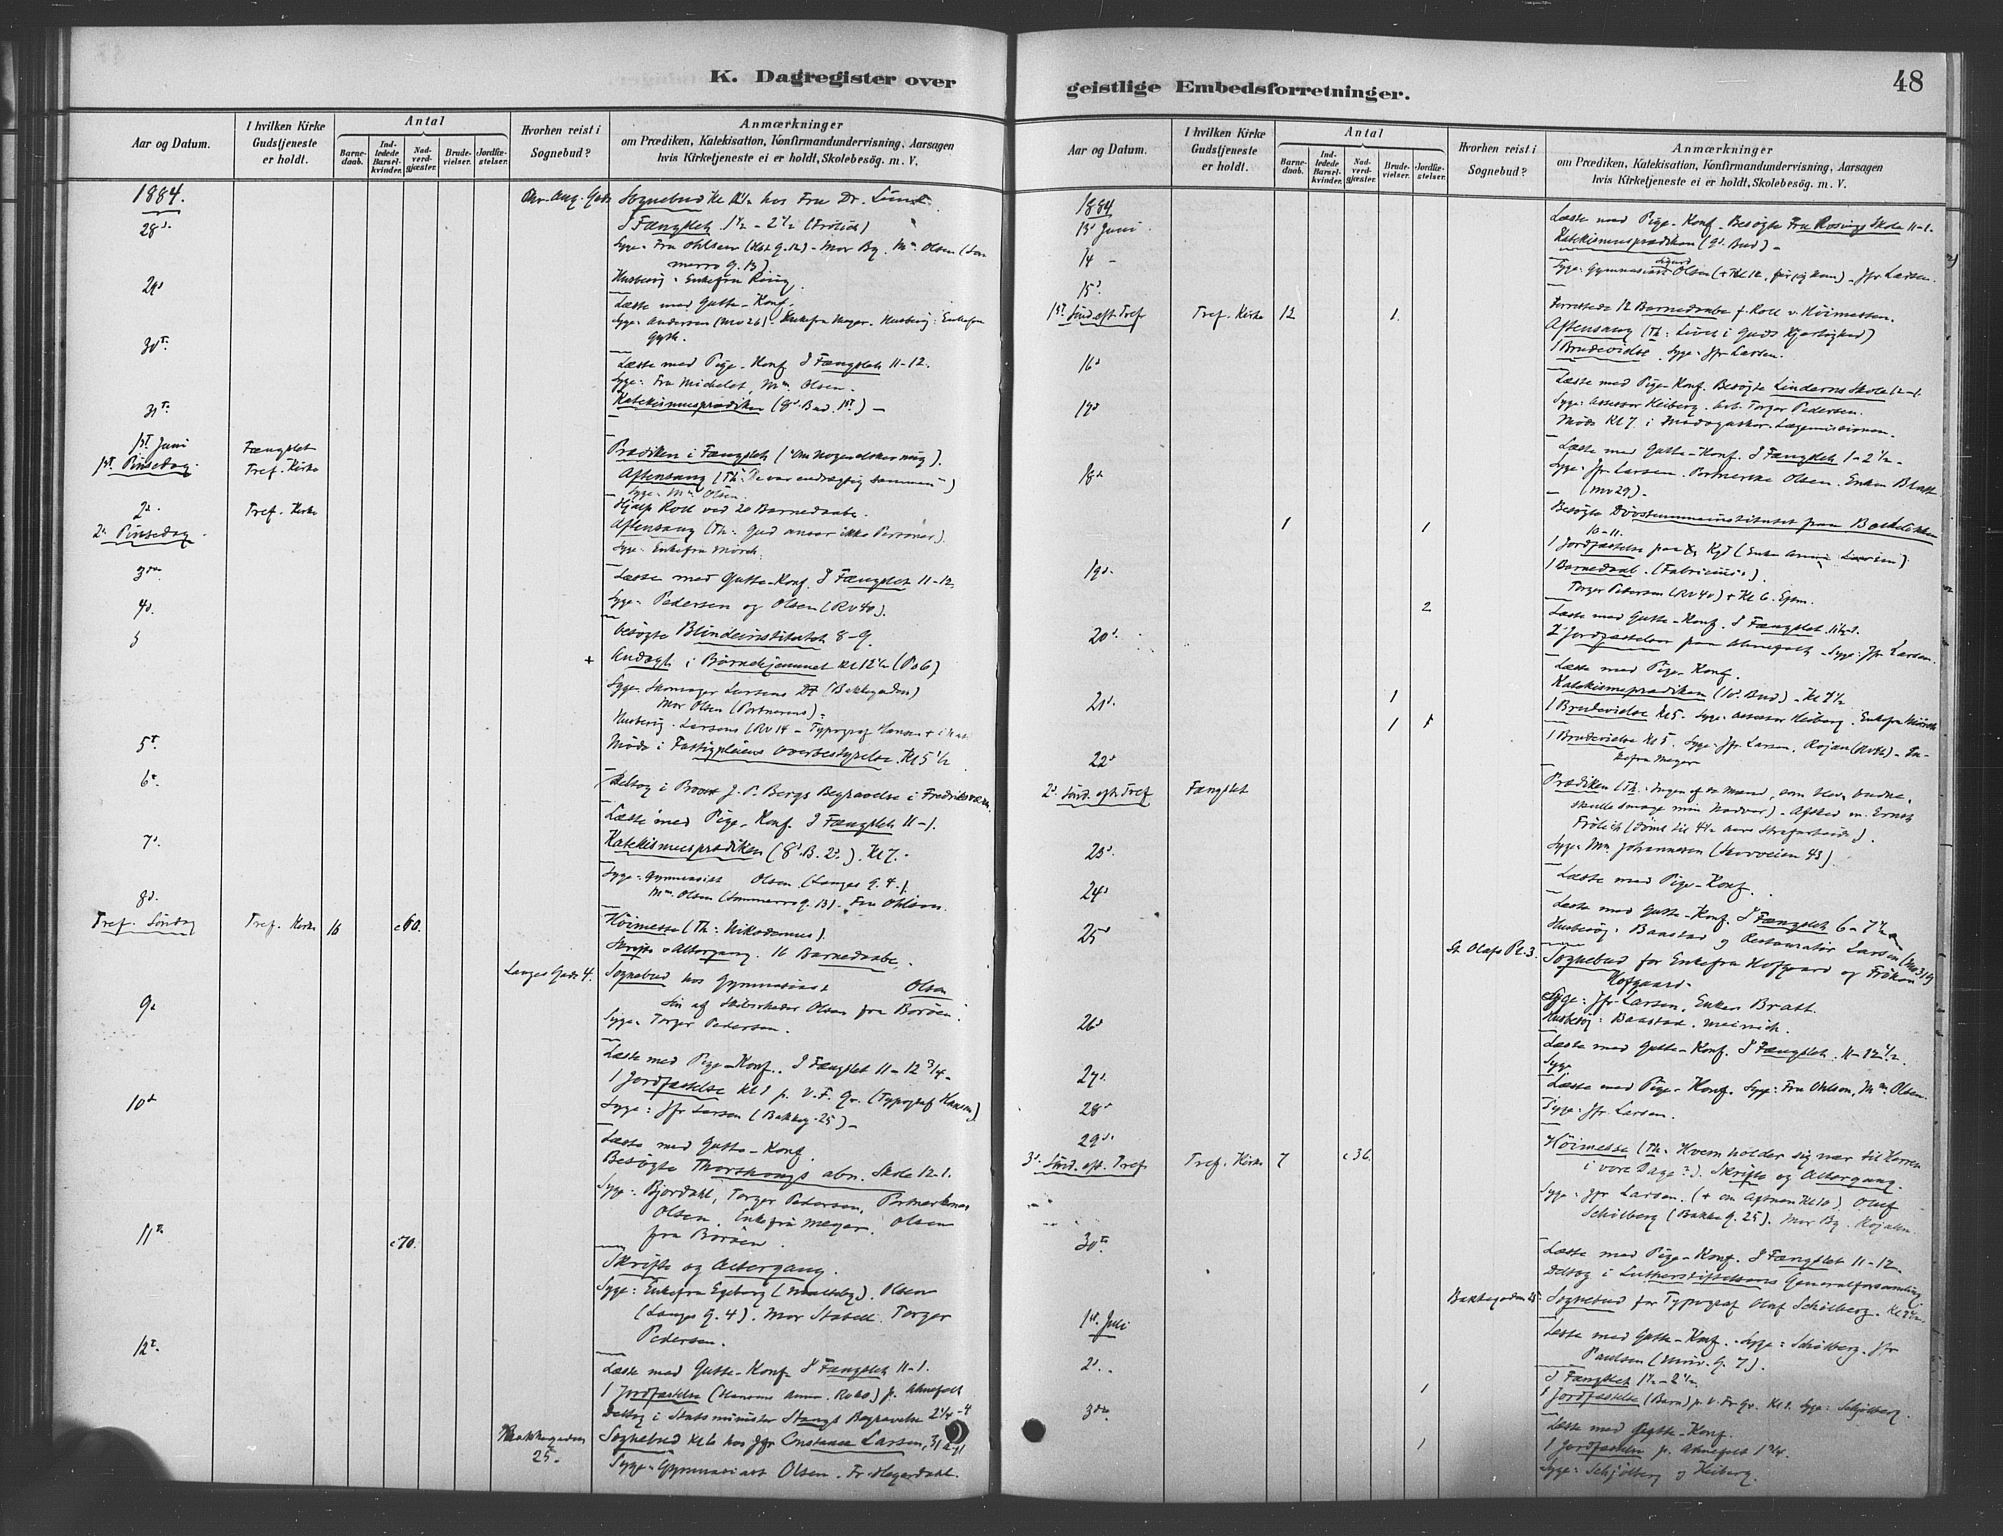 K. Dagregister over
Aar og Datum.
I hvilken Kirke Gudstjeneste er holdt.
Antal
Barne-daab.
Ind-ledede Barsel-kvinder.
Nad-verd-gjæster.
Brude-vielser.
Jordfæ-stelser.
Hvorhen reist i Sognebud?
Anmærkninger
om Prædiken, Katekisation, Konfirmandundervisning, Aarsagen
hvis Kirketjeneste ei er holdt, Skolebesøg. m. V.
1884.
Sognebud hos Fru Dr. Lund.
28d.
I Fængslet 1½ - 2½ (Frölich)
Syge: Fru Ohlsen Mor By. Mm Olsen
merro g. 13)
29d
Husbesög: Enkefru Ring.
Læste med Gutte-Konf.
Syge: Andersen (Mv 26) - Enkefru Meyer. Husbesög: Enkefru
30te
Læste med Pige-Konf. I Fængslet 11-12.
Syge: Fru Michelet, Mm Olsen.
Katekismusprædiken (8d. Bud. 1st) -
31te
1st Juni Fængslet
1st Pinsedag. Tref. Kirke
Prædiken i Fængslet (Om Nogen elsker mig).
Aftensang (Th: De var endrægtig sammen)
Syge: Mm Olsen.
2. Tref. Kirke
Hjalp Roll ved 20 Barnedaabe.
2n Pinsedag
Aftensang (Th: Gud anser ikke Personer).
Syge: Enkefru Mörch.
3die
Læste med Gutte-Konf. I Fængslet 11-12
4d.
Syge: Pedersen og Olsen (Rv 40).
5
Besøgte Blindeinstitutet 8-9.
+ Andagt i Børnehjemmet Kl 12½ (Ps 6)
Syge: Skomager Larsens (Bakkegaden)
Mor Olsen (Portnerens).
Husbesög: Larsens (Rv 14 - Typograf Hansen +
5t.
Møde i Fattigpleiens Overbestyrelse. Kl 5½
6te
Deltog i Provst J. P. Bergs Begravelse i Fredriksværn
Læste med Pige-Konf. I Fængslet 11-1.
7d.
Katekismusprædiken (8d. B. 2d.). Kl 7.
Syge: Gymnasiast Olsen (Langes G. 4.).
8d.
Mm Olsen (Sommerro g. 13). Fru Ohlson.
Tref. Söndag Tref. Kirke 16 c60.
Höimesse (Th: Nikodemus).
Skrifte & Altergang. 16 Barnedaabe.
Langes Gade 4. Sognebud hos Gymnasiast Olsen
9d
Sön af Skibsreder Olsen fra Borøen.
Syge: Torger Pedersen.
Læste med Pige-Konf. I Fængslet 11-12 3/4-
1 Jordfæstelse Kl 1 p. V. F. Gr. (Typograf Hansen)
10d
Syge: Jfr Larsen (Bakkeg. 25) -
Læste med Gutte-Konf.
Besøgte Thorshougs alm. Skole 12-1.
Syge: Bjordahl, Torger Pedersen, Portnerkones
Olsen. Enkefru Meyer. Olsen
11te c70.
fra Borøen.
Skrifte og Altergang.
Syge: Enkefru Egeberg Olsen
(Langes G. 4). Mor Stabell. Torger
Pedersen.
12t.
Læste med Gutte-Konf. I Fængslet 11-1.
1 Jordfæstelse p. Akersfeldt
Deltog i Statsminister Stangs Begravelse 2¼-4
Bakkegaden 25. Sognebud Kl 6 hos Jfr Constance Larsen, 31 a. gl
Syge: Gymnasiast Olsen.
geistlige Embedsforretninger.
48
Aar og Datum.
I hvilken Kirke Gudstjeneste er holdt.
Antal
Barne-daab.
Ind-ledede Barsel-kvinder.
Nad-verd-gjæster.
Brude-vielser.
Jordfæ-stelser.
Hvorhen reist i Sognebud?
Anmærkninger
om Prædiken, Katekisation, Konfirmandundervisning, Aarsagen
hvis Kirketjeneste ei er holdt, Skolebesøg. m. V.
1884
13d Juni
Læste med Pige-Konf. Besøgte Fru Rosings Skole 11-1.
Katekismusprædiken (9d. Bud) -
14 -
Syge: Gymnasiast Sigurd Olsen Jfr Larsen.
15d.
1st Sönd. eft. Tref Tref. Kirke 12 1.
Forrettede 12 Barnedaabe f. Roll v. Höimessen.
Aftensang (Th: Livet i Guds Kjærlighed)
1 Brudevielse. Syge: Jfr Larsen.
16d
Læste med Pige-Konf. Besøgte Linderns Skole 12-1.
17d
Syge: Assessor Heiberg. Arb. Torger Pedersen.
Møde Kl 7. i Madagaskar. Lægemissionen.
Læste med Gutte-Konf. I Fængslet 1-2½-
18d
Syge: Jfr Larsen. Portnerske Olsen. Enken Bratt
(Mv 29) -
1 1
Besøgte Døvstummeinstitutet paa Balkeløkken
10-11.
1 Jordfæstelse paa Kgd (Enke Larsen)
19d.
1 Barnedaab. (Fabricius).
Torger Pedersen (Rv 40) + Kl 6. Efm.
2
Læste med Gutte-Konf. I Fængslet
20d.
2 Jordfæstelser paa Akersfeldt - Syge: Jfr Larsen.
Læste med Pige-Konf.
Katekismeprædiken (10d. Bud) - Kl 7½
21d. 1
1 Brudevielse Kl 5. Syge: Assessor Heiberg. Enkefru Mörch
1 1
1 Brudevielse Kl 5. Syge: Jfr Larsen, En-
22d
kefru Meyer
2d. Sönd. eft. Tref Fængslet
Prædiken (Th: Ingen af de Mænd, som blev budne,
skulle smage min Nadver) - Afsked m. Ernst
Frölich (dömt til 4½ Aars Strafarbeide).
23d.
Syge: Mm Johannesen
Læste med Pige-Konf.
24d
Læste med Gutte-Konf. I Fængslet 6-7½
25d
Husbesög: Baastad og Restauratør Larsen
St Olafs Pl. 3. Sognebud for Enkefru Hofgaard og Frøken
Hofgaard-
Syge: Jfr Larsen, Enken Bratt.
26d
Husbesög: Baastad. Meinich.
Læste med Gutte-Konf. I Fængslet. 11-12½.
Syge
27d.
Læste med Pige-Konf. Syge: Fru Ohlson, Mm Olsen.
28d
Syge: Jfr Larsen.
29d.
3d. Sönd. eft. Tref. Tref. Kirke 7 c36.
Höimesse (Th: Hvem holder sig nær til Herren
i vore Dage?). Skrifte og Altergang.
Syge: Jfr Larsen. (+ om Aftenen Kl 10). Oluf
Schölberg (Bakke g. 25). Mor By.
30te
Læste med Pige-Konf. I Fængslet 11-12-
Deltog i Lutherstiftelsens Generalforsamling
Bakkegaden 25 Sognebud for Typograf Oluf Schölberg. Kl 7½.
1st Juli
Læste med Gutte-Konf. - Syge: Schölberg. Jfr
Paulsen
2d. -
I Fængslet 1½-2½.
1
1 Jordfæstelse (Barn) p. V. Fr. Gr. Kl 1. Syge: Schjölberg.
3die.
Læste med Gutte-Konf.
1
1 Jordfæstelse p. Akersfelt 1¾.
Syge: Schjölberg og Heiberg.